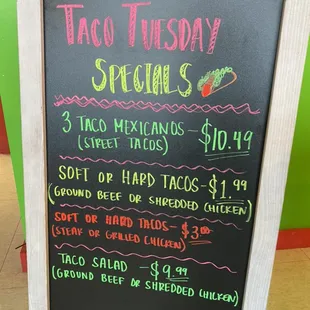 TACO TUESDAY
SPECIALS
3 TACO MEXICANOS - $10.49
(STREET TACOS)
SOFT OR HARD TACOS - $1.99
(GROUND BEEF OR SHREDDED CHICKEN)
SOFT OR HARD TACOS - $3.00
(STEAK OR GRILLED CHICKEN)
TACO SALAD - $9.99
(GROUND BEEF OR SHREDDED CHICKEN)